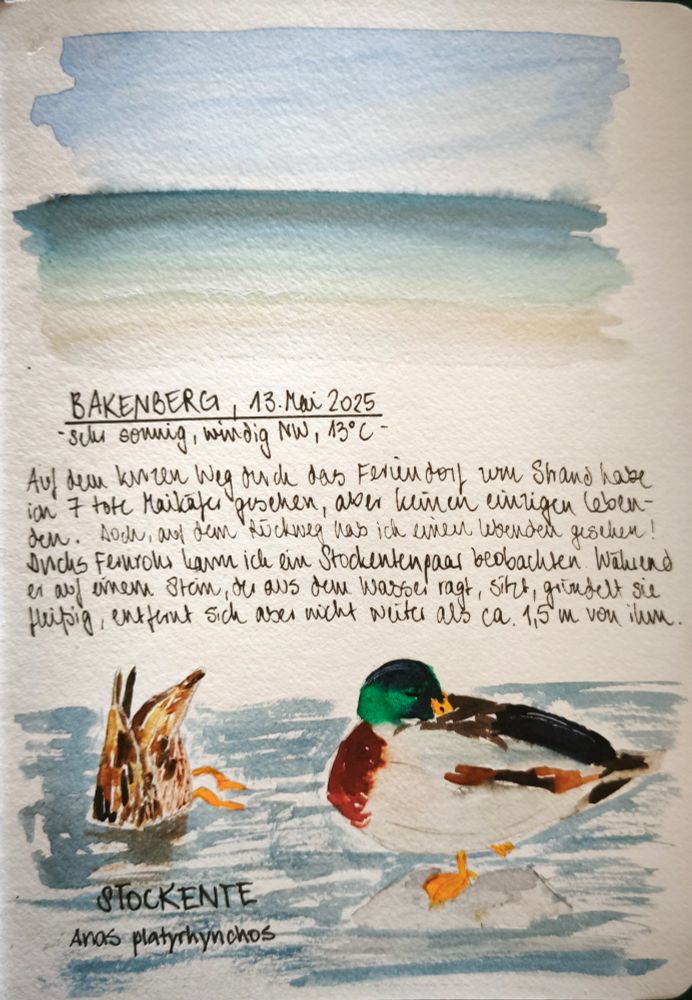 BAKENBERG, 13. Mai 2025
- sehr sonnig, windig NW, 13°C -
Auf dem kurzen Weg durch das Feriendorf zum Strand habe
ich 7 tote Maikäfer gesehen, aber keinen einzigen leben-
den. Doch, auf dem Rückweg hab ich einen lebenden gesehen!
Durchs Fernrohr kann ich ein Stockentenpaar beobachten. Während
er auf einem Stein, der aus dem Wasser ragt, sitzt, gründelt sie
fleißig, entfernt sich aber nicht weiter als ca. 1,5 m von ihm.
STOCKENTE
Anas platyrhynchos